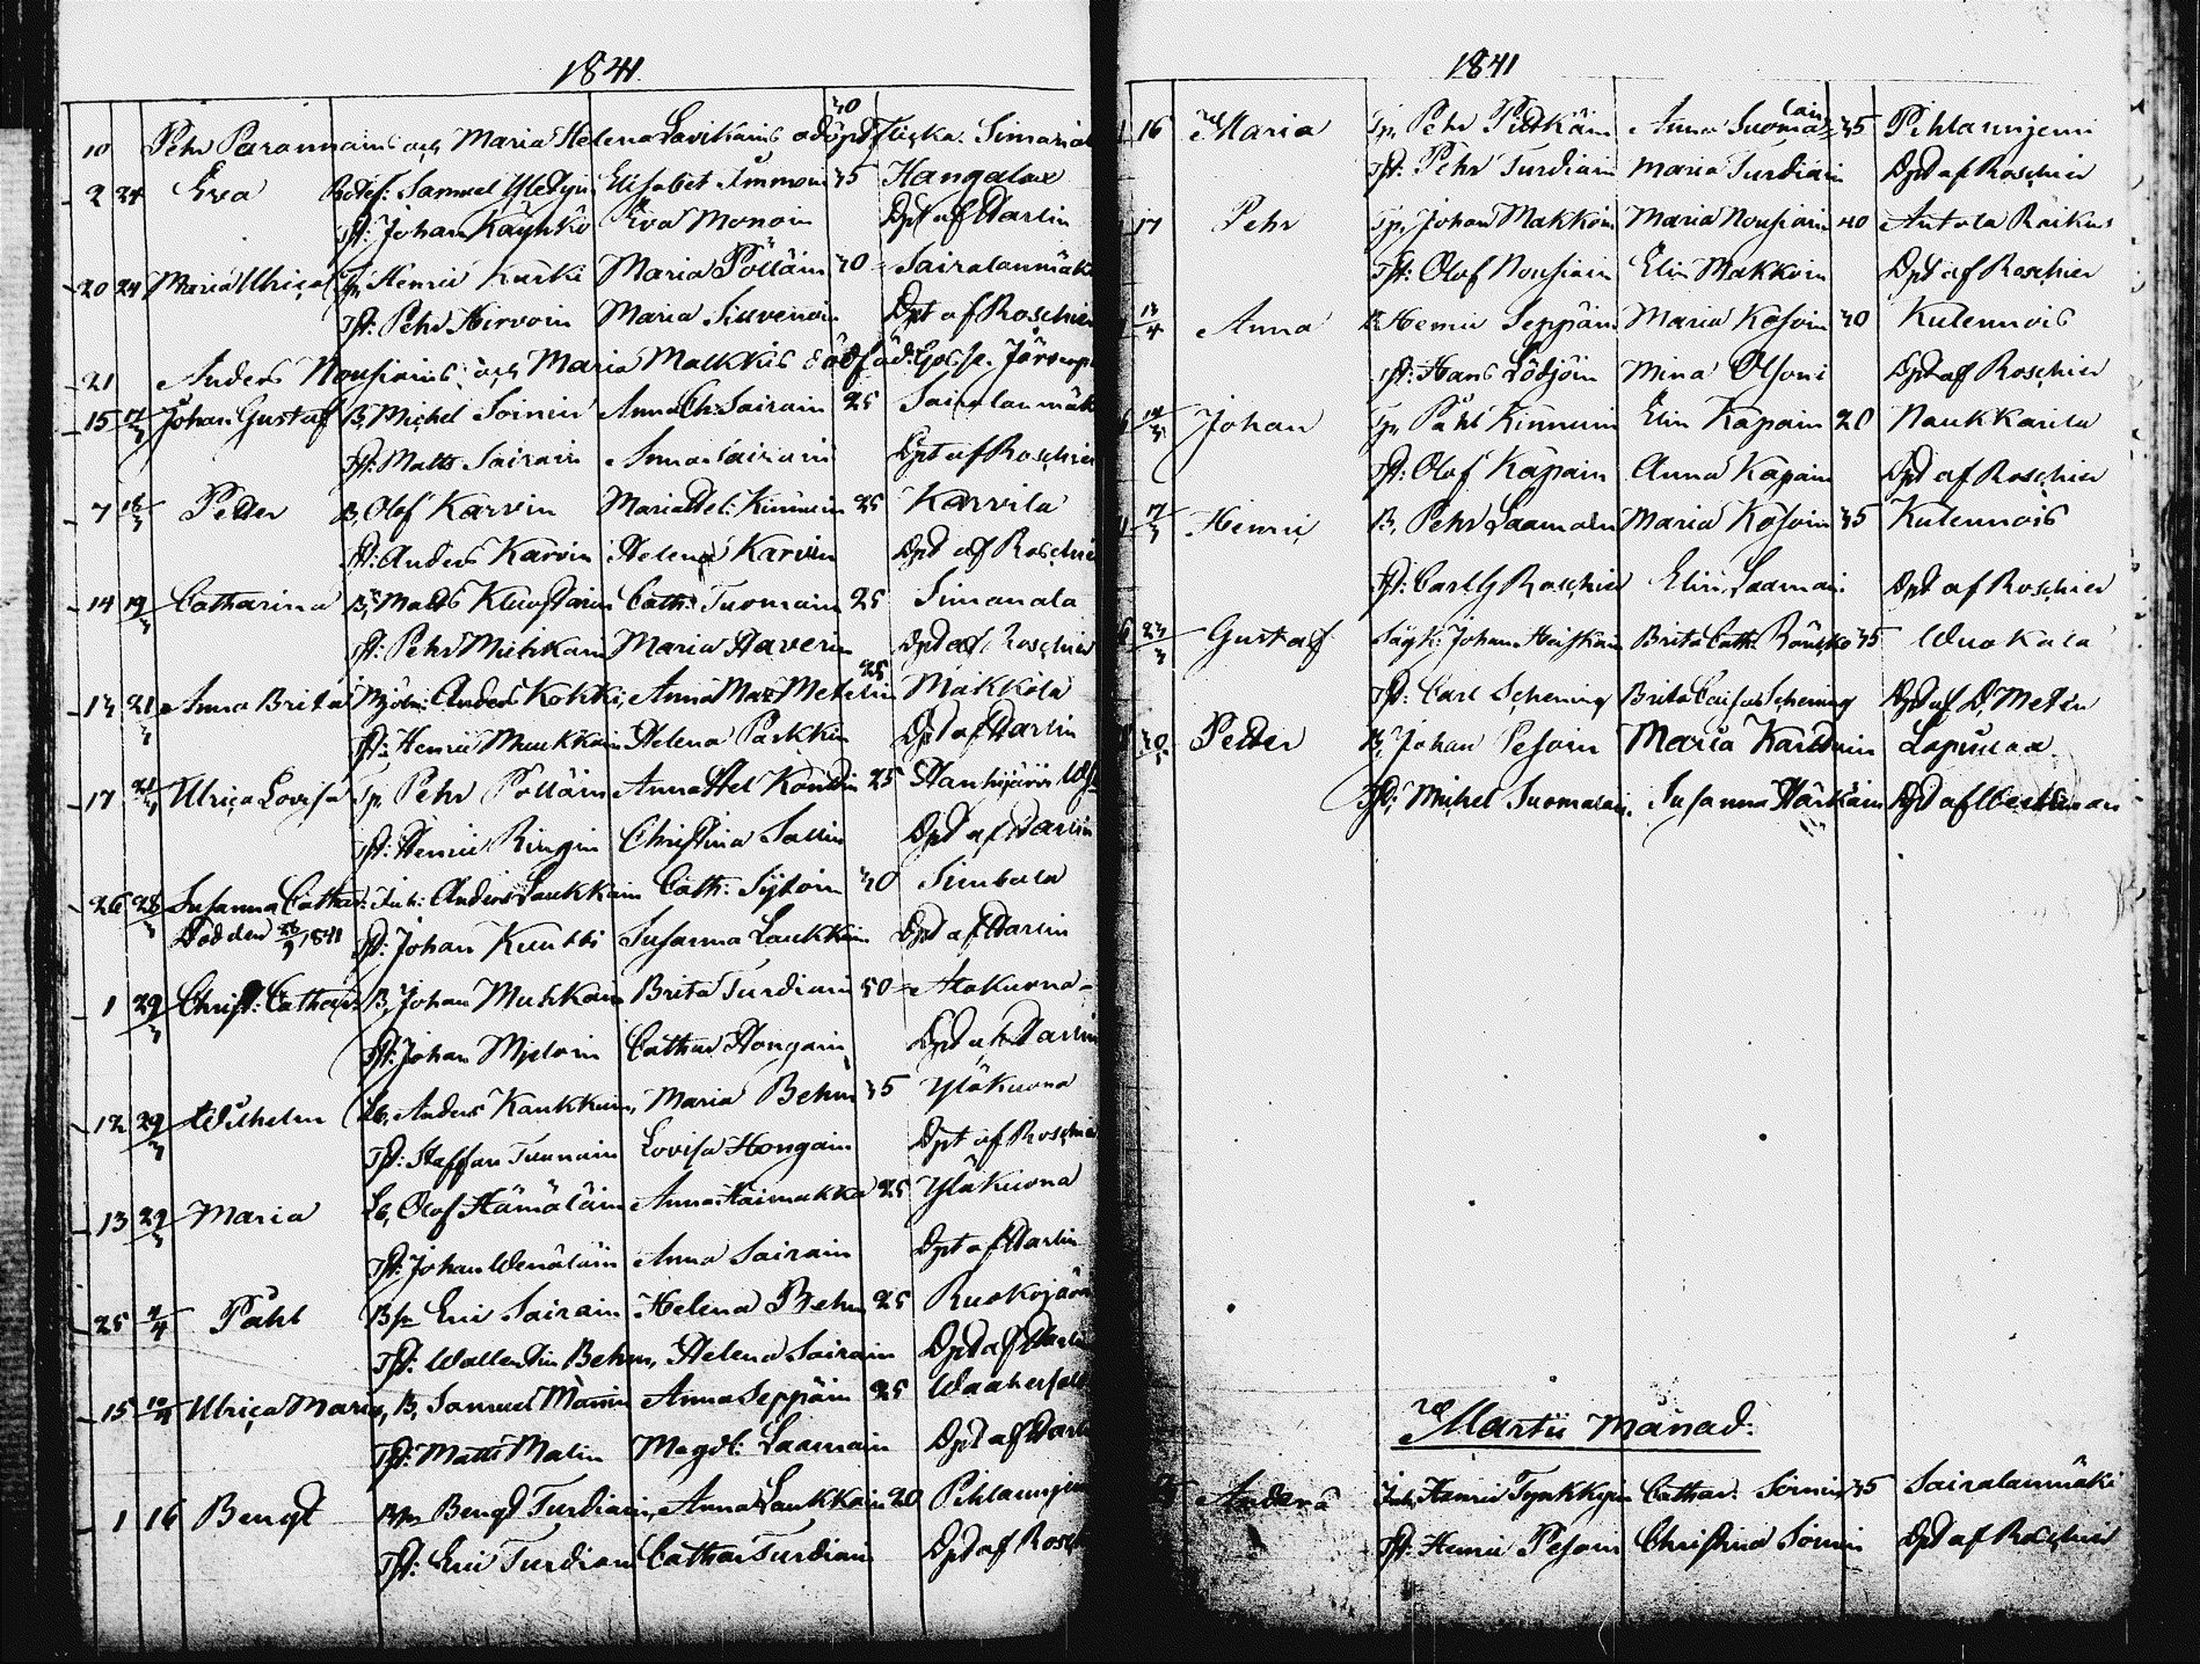 1841
10 Pehr Paronnains och Maria Helena Lavikains odöpt Flicka. Simanal 30
2 24 Eva Samuel Elisabet Immoin 35 Kangalax
Tst: Johan Käyhkö Eva Monoin Dpt af Harlin
20 24 Maria Ulrica Tp Henric Kurki Maria Pölläin 30 Sairalanmäki
Tst: Pehr Hirvoin Maria Siuvenoin Dpt af Roschier
21 Anders Nousiains och Maria Makkis Gosse.
15 17/3 Johan Gustaf B, Michel Soinin Anna Ch: Sairain 25 Sairalanmäk
Tst: Matts Sairain Anna Sairain Dpt af Roschier
7 18/3 Petter B, Olof Karvin Maria Hel: Kinnuin 25 Karvila
Tst: Anders Karvin Helena Karvin Dpt af Roschier
14 19/3 Catharina B, Matts Cath: Tuomain 25 Simanala
Tst: Pehr Muhkain Maria Haverin Dpt af Roschier
13 21/3 Anna Brita Mjöln: Anders Kohki, Anna Mar Metelin 25 Makkola
Tst: Henric Muukkoin Helena Parkkin Dpt af Harlin
17 21/4 Ulrica Lovisa Tp, Pehr Pölläin Anna Hel Konttin 25 Hanhijärvi
Tst: Henric Ringin Christina Sallin Dpt af Harlin
26 28/3 Susanna Cathar: Inh: Anders Laukkain Cath: Sytoin 30 Simbala
Död den 26/9 1841 Tst: Johan Kuutti Susanna Laukkain Dpt af Harlin
1 29/3 Christ: Cathar: B, Johan Muhkain Brita Turdiain 50 Alakuona
Tst: Johan Cathar Hongain Dpt af Harlin
12 29/3 Wilhelm Lb, Anders Kaukkuin, Maria Behm 35 Yläkuona
Tst: Staffan Tuunain Lovisa Hongain Dpt af Roschier
13 29/3 Maria Lb, Olof Hämäläin Anna Haimakka 25 Yläkuona
Tst: Johan Wenäläin Anna Sairain Dpt af Harlin
25 4/4 Påhl Bp Eric Sairain Helena Behm 25 Ruokojärvi
Tst: Wallentin Behm, Helena Sairain Dpt af Harlin
15 10/4 Ulrica Maria, B, Samuel Männin Anna Seppäin 25
Tst: Matts Malin Magdl: Laamain Dpt af Harlin
1 16 Bengt Bp Bengt Turdiain, Anna Laukkain 20 Pihlaunjemi
Tst: Eric Turdiain Cathar Turdiain Dpt af Roschier
1841
16 Maria Tp, Pehr Pitkäin Anna Suomalain 35 Pihlaunjemi
Tst: Pehr Turdiain Maria Turdiain Dpt af Roschier
17 Pehr Tp, Johan Makkoin Maria Nousiain 40 Antola
Tst: Olof Nousiain Elin Makkoin Dpt af Roschier
13/4 Anna B Henric Seppäin Maria Kosoin 30 Kulennois
Tst: Hans Lödjöin Mina Olsoni Dpt af Roschier
14/3 Johan Tp, Påhl Kinnuin Elin Käpäin 20 Naukkarila
Tst: Olof Käpäin Anna Käpäin Dpt af Roschier
17/3 Henric B, Pehr Laamain Maria Kosoin 35 Kulennois
Tst: Carl G Roschier Elin Laamain Dpt af Roschier
23/3 Gustaf Johan Heiskain Brita Cath: Räusko 35 Wuokala
Tst: Carl Schening Brita Caisa Schening Dpt af D, Metén
30/5 Petter B, Johan Pesoin Maria Karttuin
Tst: Michel Suomalain. Susanna Härkäin
Martii Månad:
Anders Inh, Henric Tynkkyin Cathar. Soinin 35 Sairalanmäki
Tst: Henric Pesoin Christina Soinin Dpt af Roschier